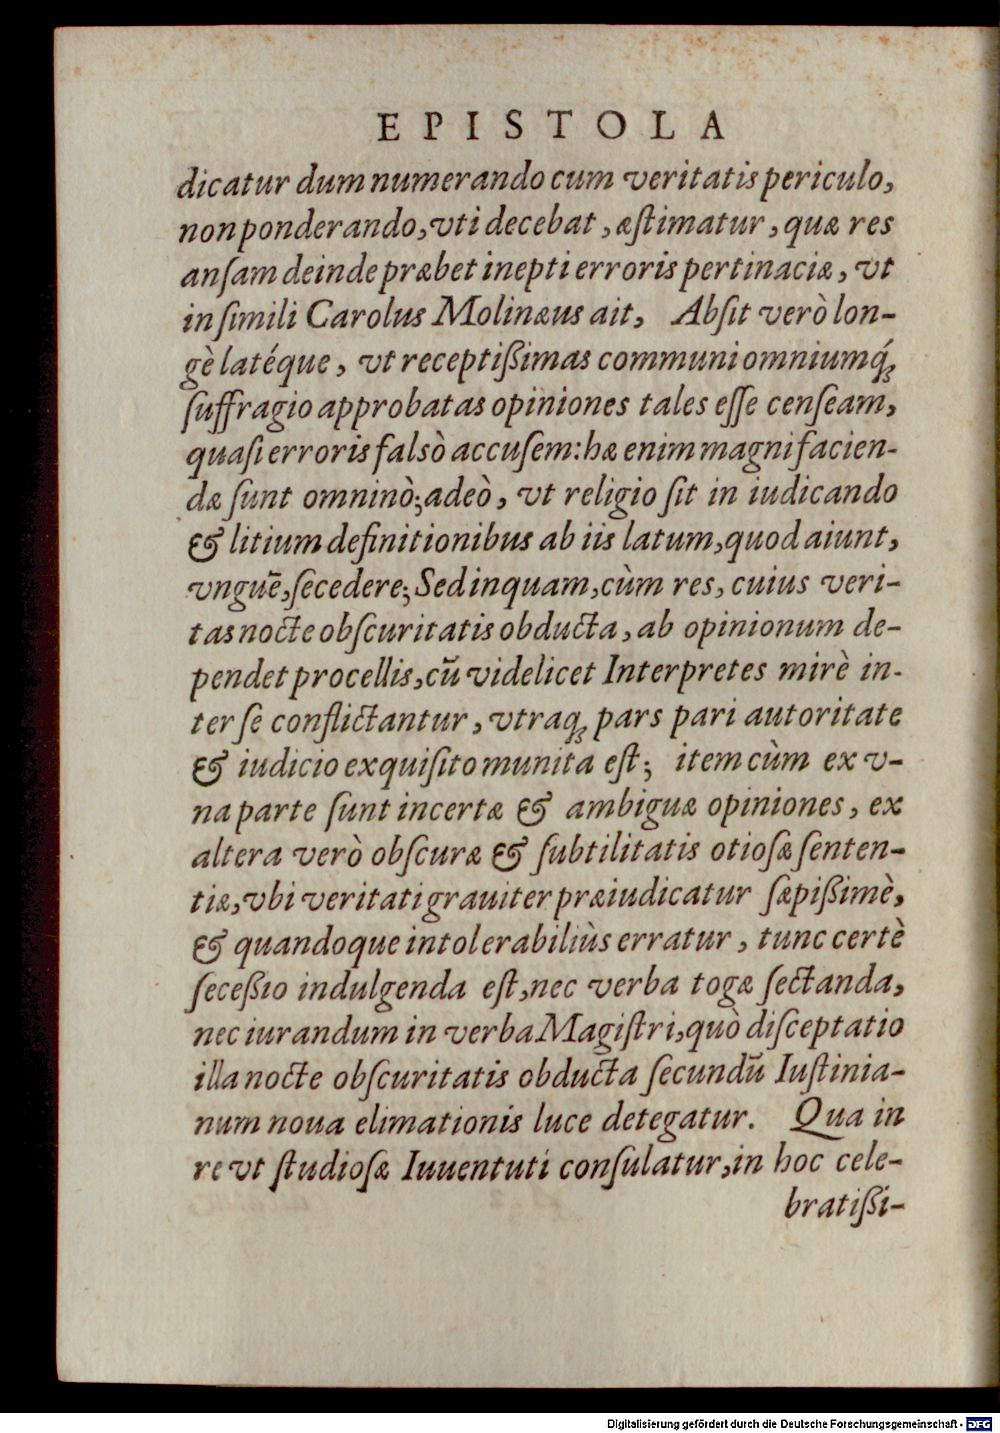 EPISTOLA
dicatur dum numerando cum veritatis periculo,
non ponderando, vti decebat, æſtimatur, quæ res
anſam deinde præbet inepti erroris pertinaciæ, vt
in ſimili Carolus Molinæus ait, Abſit verò lon-
gè latéque, vt receptißimas communi omniumq́;
ſuffragio approbatas opiniones tales eſſe cenſeam,
quaſi erroris falsò accuſem: hæ enim magni facien-
dæ ſunt omninò; adeò, vt religio ſit in iudicando
& litium definitionibus ab iis latum, quod aiunt,
vnguē, ſecedere; Sed inquam, cùm res, cuius veri-
tas nocte obſcuritatis obducta, ab opinionum de-
pendet procellis, cū videlicet Interpretes mirè in-
ter ſe conflictantur, vtraq; pars pari autoritate
& iudicio exquiſito munita eſt; item cùm ex v-
na parte ſunt incertæ & ambiguæ opiniones, ex
altera verò obſcuræ & ſubtilitatis otioſæ ſenten-
tiæ, vbi veritati grauiter præiudicatur ſæpißimè,
& quandoque intolerabiliùs erratur, tunc certè
ſeceßio indulgenda eſt, nec verba togæ ſectanda,
nec iurandum in verba Magiſtri, quò diſceptatio
illa nocte obſcuritatis obducta ſecundū Iuſtinia-
num noua elimationis luce detegatur. Qua in
re vt ſtudioſæ Iuuentuti conſulatur, in hoc cele-
bratißi-
Digitalisierung gefördert durch die Deutsche Forschungsgemeinschaft - DFG